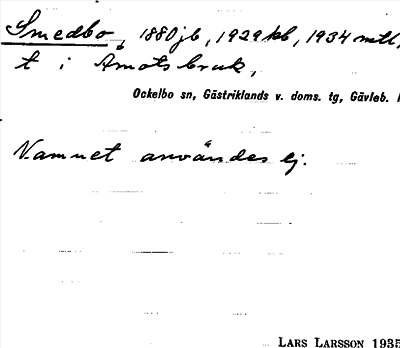 Smedbo, 1880 jb, 1929 kb, 1934 mtl,
t i Åmots bruk,
Ockelbo sn, Gästriklands v. doms. tg, Gävleb.
Namnet användes ej.
LARS LARSSON 1935